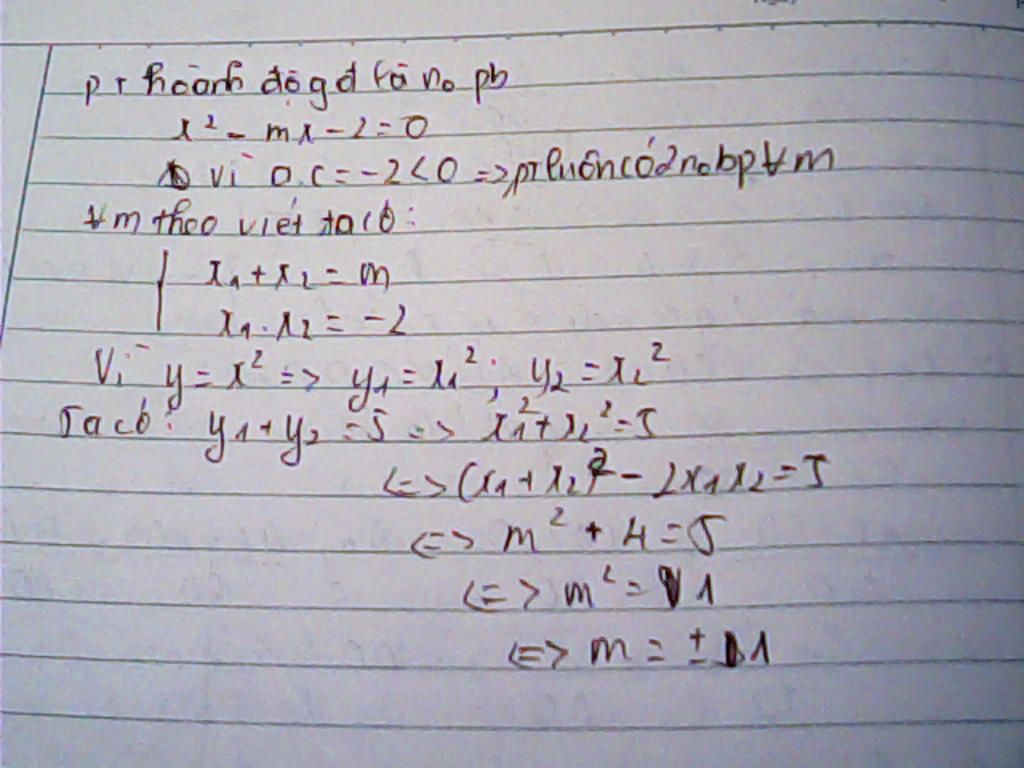 pt hoành độ gđ là no pb
x² - mx - 2 = 0
vì a.c = -2 < 0 => pt luôn có 2 no bp ∀ m
∀m theo viét ta có:
x₁ + x₂ = m
x₁ . x₂ = -2
Vì y = x² => y₁ = x₁² ; y₂ = x₂²
Ta có: y₁ + y₂ = 5 => x₁² + x₂² = 5
<=> (x₁ + x₂)² - 2x₁x₂ = 5
<=> m² + 4 = 5
<=> m² = 1
<=> m = ± 1